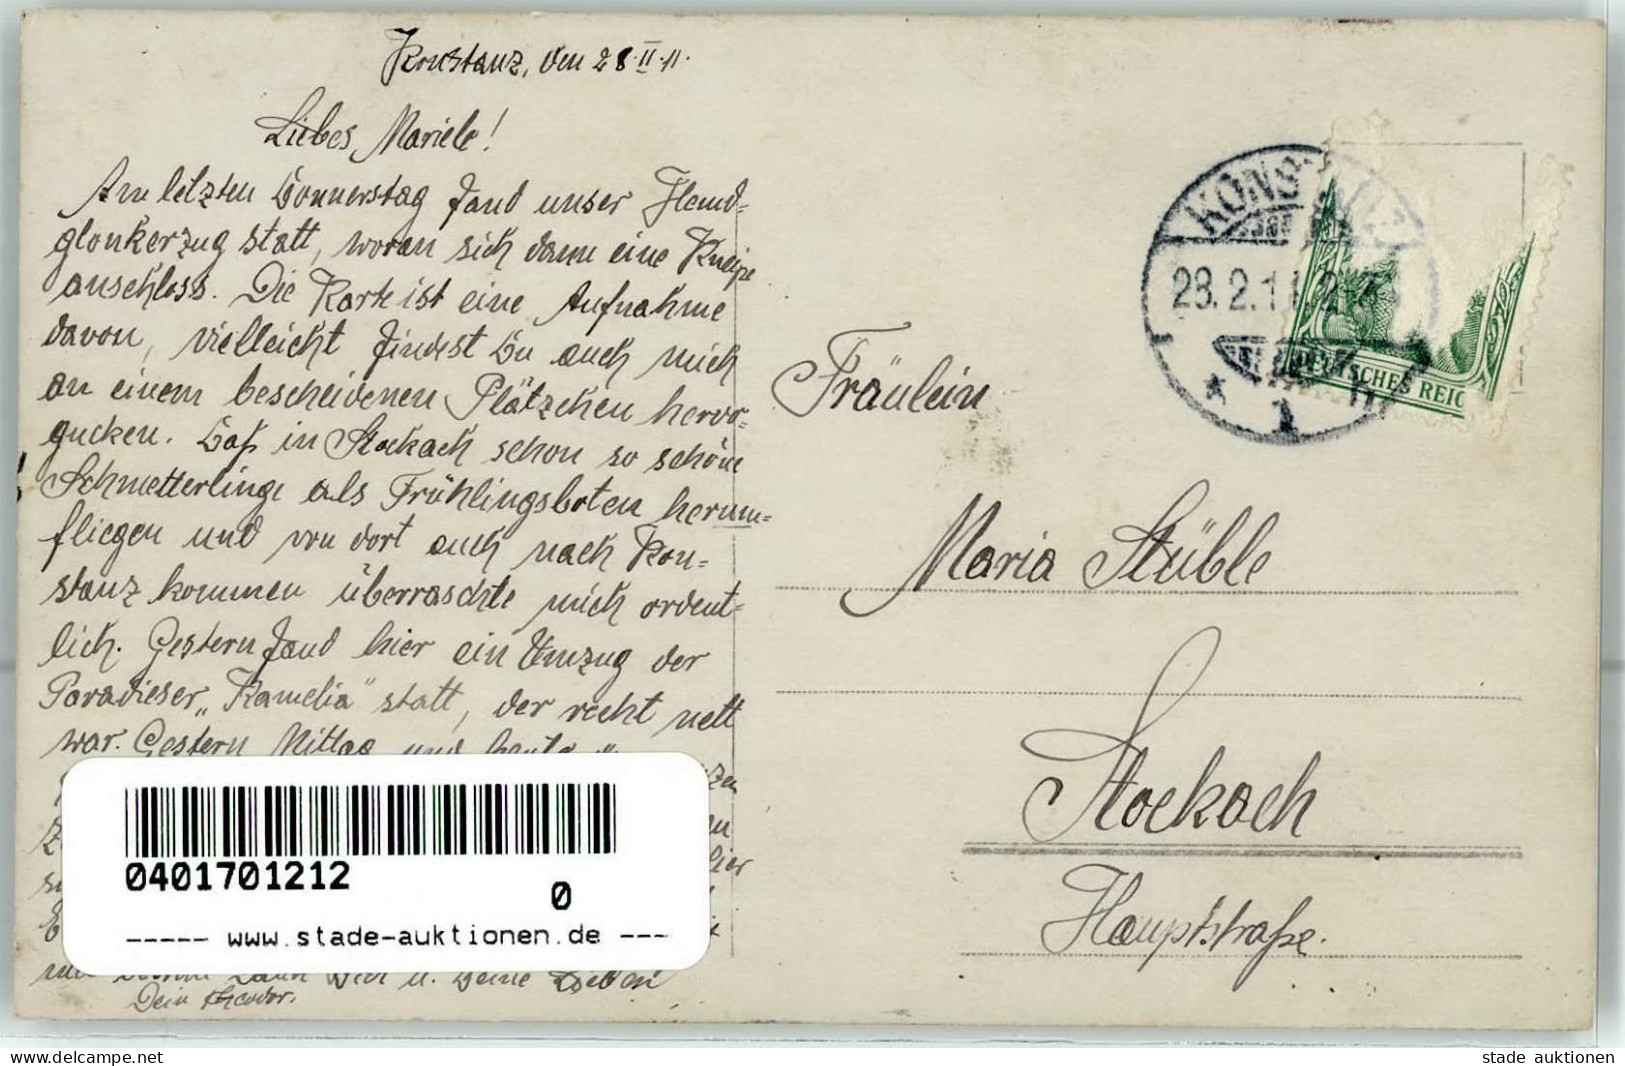 Konstanz, den 28.II.11.
Liebes Mariele!
Am letzten Donnerstag fand unser Hemd=
glonkerzug statt, woran sich dann eine Kneipe
anschloss. Die Karte ist eine Aufnahme
davon, vielleicht findest Du auch mich
an einem bescheidenen Plätzchen hervor-
gucken. Daß in Stockach schon so schöne
Schmetterlinge als Frühlingsboten herum=
fliegen und von dort auch nach Kon=
stanz kommen überraschte mich ordent=
lich. Gestern fand hier ein Umzug der
Paradieser „Kamelia" statt, der recht nett
war. Gestern Mittag und heute
mit
Dich u. Deine Lieben
Dein Theodor.
Fräulein
Maria Stüble
Stockach
Hauptstraße.
KONST
28.2.11.
* 1
DEUTSCHES REIC
0401701212
0
----- www.stade-auktionen.de ---
www.delcampe.net
stade auktionen